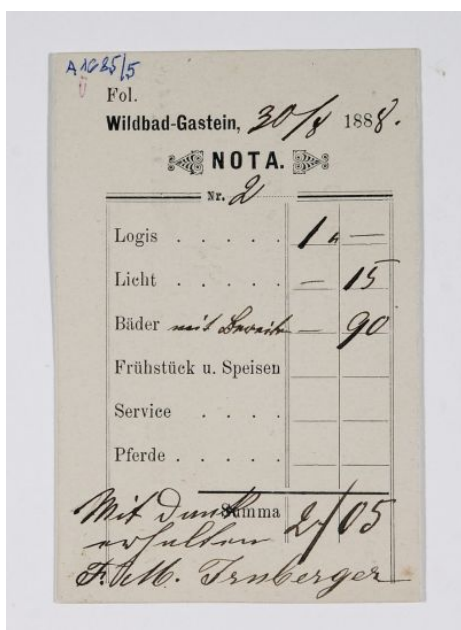 A 1635/5
Fol.
Wildbad-Gastein, 30/8 1888.
NOTA.
Nr. 2
Logis . . . . . 1 —
Licht . . . . . — 15
Bäder mit — 90
Frühstück u. Speisen
Service . . . .
Pferde . . . . .
Summa 2/05
Mit Dank
erhalten
F. M. Irnberger